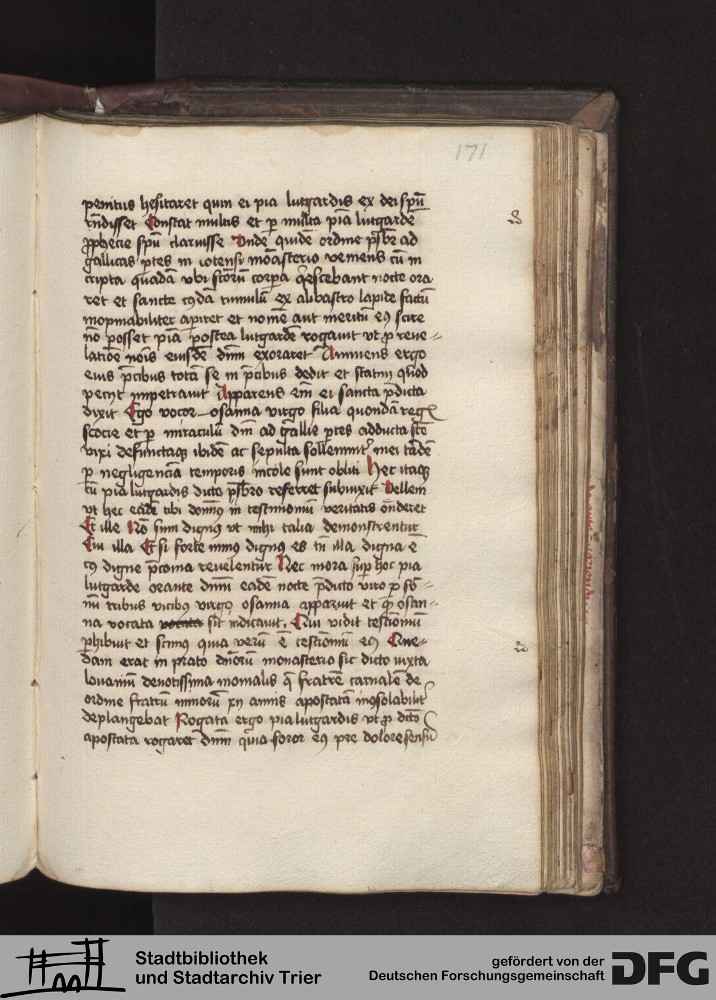 171
penitus hesitaret quin ei pia lutgardis ex dei spū
rn̄disset Constat multis et ꝑ multa pia lutgarde
ꝓphecie spū claruisse Vnde quidē ordine pr̄sbr̄ ad
gallicas ꝑtes in iotensi mōasterio veniens cū in
cripta quadā vbi sc̄torū corpa q̄escebant nocte ora
ret et sancte cuiꝰdā tumulū ex alibastro lapide factū
inopinabiliter apiret et nomē aut meritū eiꝰ scire
nō posset piā postea lutgardē rogauit vt ꝓ reue-
latiōe nōis eiusdē dn̄m exoraret Annuens ergo
eius p̄cibus totā se in p̄cibus dedit et statim quod
pecijt impetrauit Apparens em̄ ei sancta p̄dicta
dixit Ego vocor osanna virgo filia quondā reg
scocie et ꝑ miraculū dn̄i ad gallie ptes adducta sc̄te
vixi defunctaqꝫ ibidē ac sepulta sollemnit̉ mei tādē
ꝑ negligenciā temporis incole sunt obliti Hec itaqꝫ
cū pia lutgardis dicto pr̄sbr̄o referret subiuxit Vellem
vt hec eadē tibi dominꝰ in testimoniū veritatis ōnderet
Et ille Nō sum dignꝰ vt mihi talia demonstrentur
Cui illa Et si forte minꝰ dignꝰ es tn̄ illa digna ē
cuiꝰ digne p̄conia reuelentur Nec mora suꝑ hoc pia
lutgarde orante dn̄m eadē nocte p̄dicto viro ꝑ sō-
nū tribus vicibꝰ virgo osanna apparuit et qꝫ osan-
na vocata vocata sit indicauit. Qui vidit testioniū
ꝑhibuit et scimꝰ quia verū ē testioniū eiꝰ Que-
dam erat in prato dn̄orum monasterio sic dicto iuxta
louaniū deuotissima monialis q̄ fratrē carnalē de
ordine fratrū minorū xij annis apostatā incōsolabilit̉
deplangebat Rogata ergo pia lutgardis vt ꝓ dicto
apostata rogaret dn̄m quia soror eiꝰ pre dolore sensū
Stadtbibliothek
und Stadtarchiv Trier
gefördert von der
Deutschen Forschungsgemeinschaft
DFG